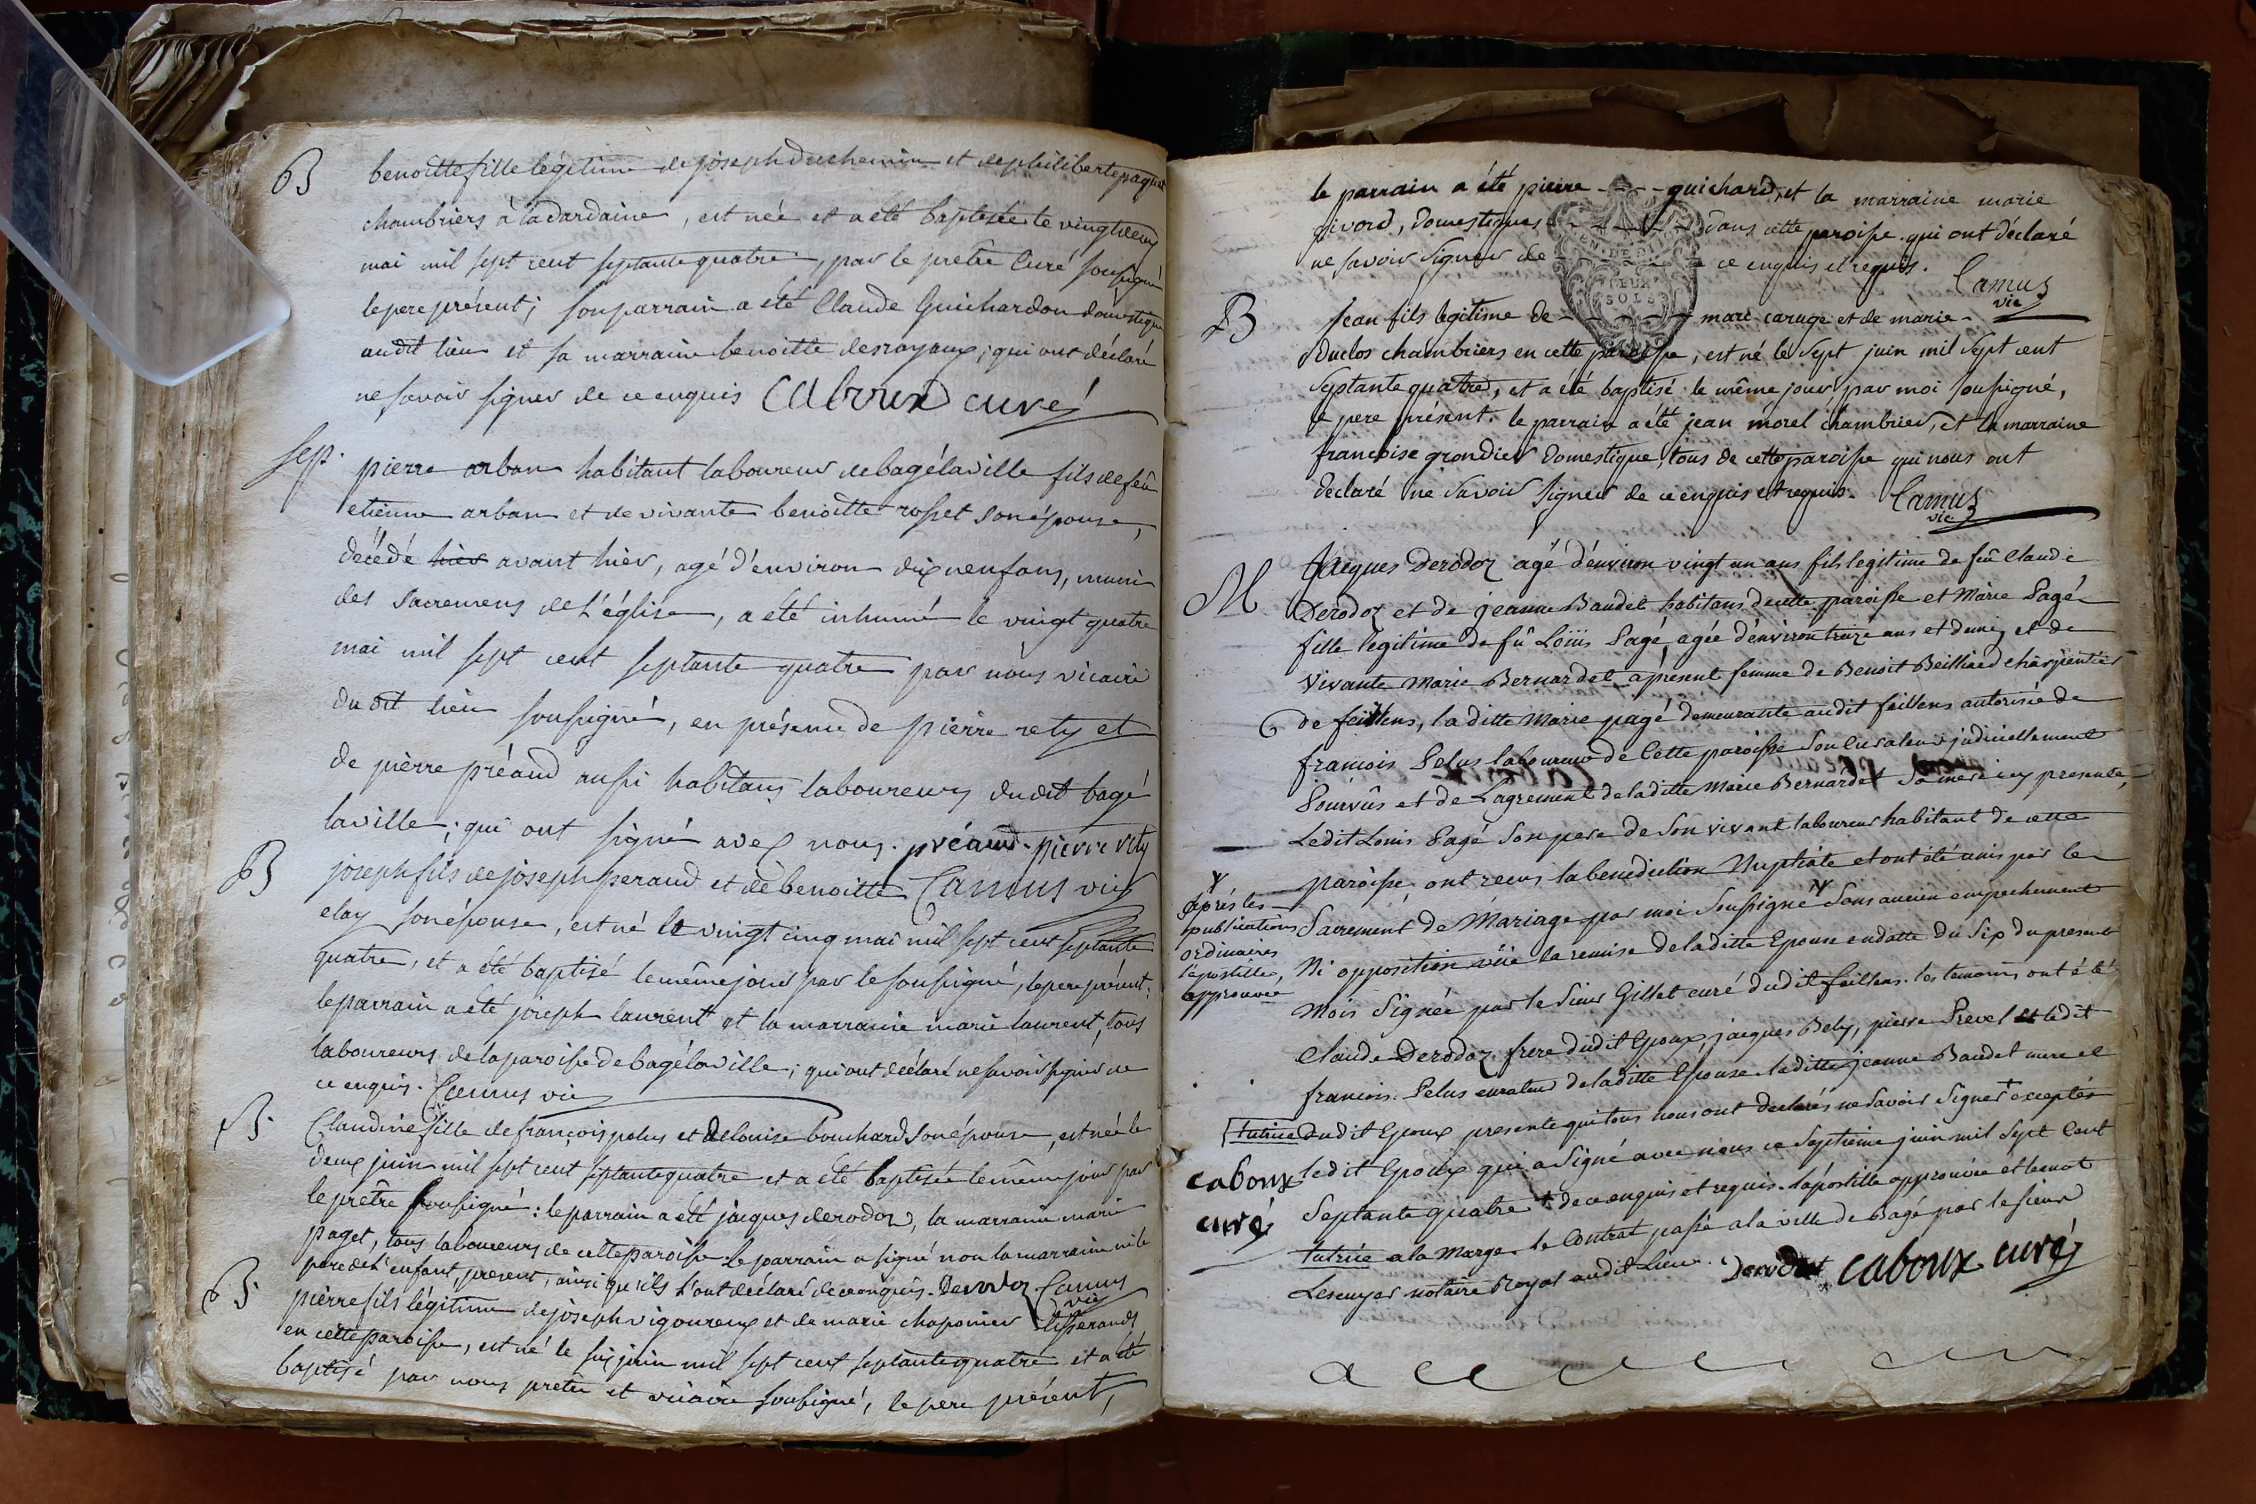 B benoitte fille légitime de joseph duchemin et de philiberte paquet
chambriers à la dardaine, est née et a été baptisée le vingtdeux
mai mil sept cent septante quatre, par le prêtre curé soussigné
le pere présent; son parrain a été Claude Guichardon domestique
audit lieu et sa marraine benoitte desrayaux; qui ont déclaré
ne savoir signer de ce enquis Caboux curé
sep. pierre arban habitant laboureur de bagélaville fils de feû
etienne arban et de vivante benoitte rosset son épouse,
décédé hier avant hier, agé d'environ dix neuf ans, muni
des sacremens de l'église, a été inhumé le vingt quatre
mai mil sept cent septante quatre par nous vicaire
dudit lieu soussigné, en présence de pierre rety et
de pierre préaud aussi habitans laboureurs dudit bagé
laville; qui ont signé avec nous. préaud. pierre rety
B joseph fils de joseph peraud et de benoitte Camus vic
elay son épouse, est né le vingt cinq mai mil sept cent septante
quatre, et a été baptisé le même jour par le soussigné, le pere présent;
le parrain a été joseph laurent et la marraine marie laurent, tous
laboureurs de la paroisse de bagélaville; qui ont déclaré ne savoir signer de
ce enquis. Camus vic
B. Claudine fille de françois polus et de louise bouchard son épouse, est née le
deux juin mil sept cent septante quatre et a été baptisée le même jour par
le prêtre soussigné: le parrain a été jacques derodoz, la marraine marie
paget, tous laboureurs de cette paroisse. le parrain a signé non la marraine ni le
pere de l'enfant, present, ainsi qu'ils l'ont déclaré de ce enquis. Derodoz Camus
vic
B. pierre fils légitime de joseph vigoureux et de marie chaponier tisserands
en cette paroisse, est né le six juin mil sept cent septante quatre et a été
baptisé par nous prêtre et vicaire soussigné, le pere présent,
le parrain a été pierre guichard, et la marraine marie
pivord, domestiques dans cette paroisse qui ont déclaré
ne savoir signer de ce enquis et requis. Camus
vic
B Jean fils legitime de marc caruge et de marie
Duclos chambriers en cette paroisse, est né le sept juin mil sept cent
septante quatre, et a été baptisé le même jour, par moi soussigné,
le pere présent. le parrain a été jean morel chambrier, et la marraine
françoise grondier domestique, tous de cette paroisse qui nous ont
declaré ne savoir signer de ce enquis et requis. Camus
vic
M Jacques Derodoz agé d'environ vingt un ans fils legitime de fû Claude
Derodoz et de jeanne Baudet habitans de cette paroisse et Marie Pagé
fille legitime de fû Loüis Pagé, agée d'environ treize ans et demi, et de
Vivante Marie Bernardet apresent femme de Benoit Beilliard charpentier
de feillens, la ditte Marie pagé demeurante audit feillens autorisée de
francois Pelus laboureur de Cette paroisse son Curateur judiciellement
Pourvûs et de L'agrement de la ditte Marie Bernardet sa mere icy presente,
Ledit Louis Pagé son pere de son vivant laboureur habitant de cette
paroisse ont recus la benediction Nuptiale et ont été unis par le
Sacrement de Mariage par moi soussigné sans aucun empechement
après les
publications
ordinaires
l'apostille
approuvée
Ni opposition vüe la remise de la ditte Epouse en datte du Six du present
Mois Signée par le Sieur Gillet curé dudit feillens. les temoins ont été
Claude Derodoz frere dudit Epoux, jacques Bely, pierre Prevel et ledit
francois Pelus curateur de la ditte Epouse la ditte jeanne Baudet mere et
tutrice Dudit Epoux presente qui tous nous ont declarés ne Savoir Signer exceptés
caboux curé
ledit Epoux qui a Signé avec nous ce Septieme juin mil Sept Cent
Septante quatre de ce enquis et requis. l'apostille approuvée et le mot
tutrice a la Marge. le Contrat passé a la ville de Bagé par le sieur
Lescuyer notaire Royal audit Lieu. Derodoz caboux curé